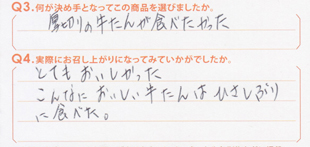 Q3.何が決め手となってこの商品を選びましたか。
厚切りの牛たんが食べたかった
Q4.実際にお召し上がりになってみていかがでしたか。
とてもおいしかった
こんなにおいしい牛たんはひさしぶり
に食べた。